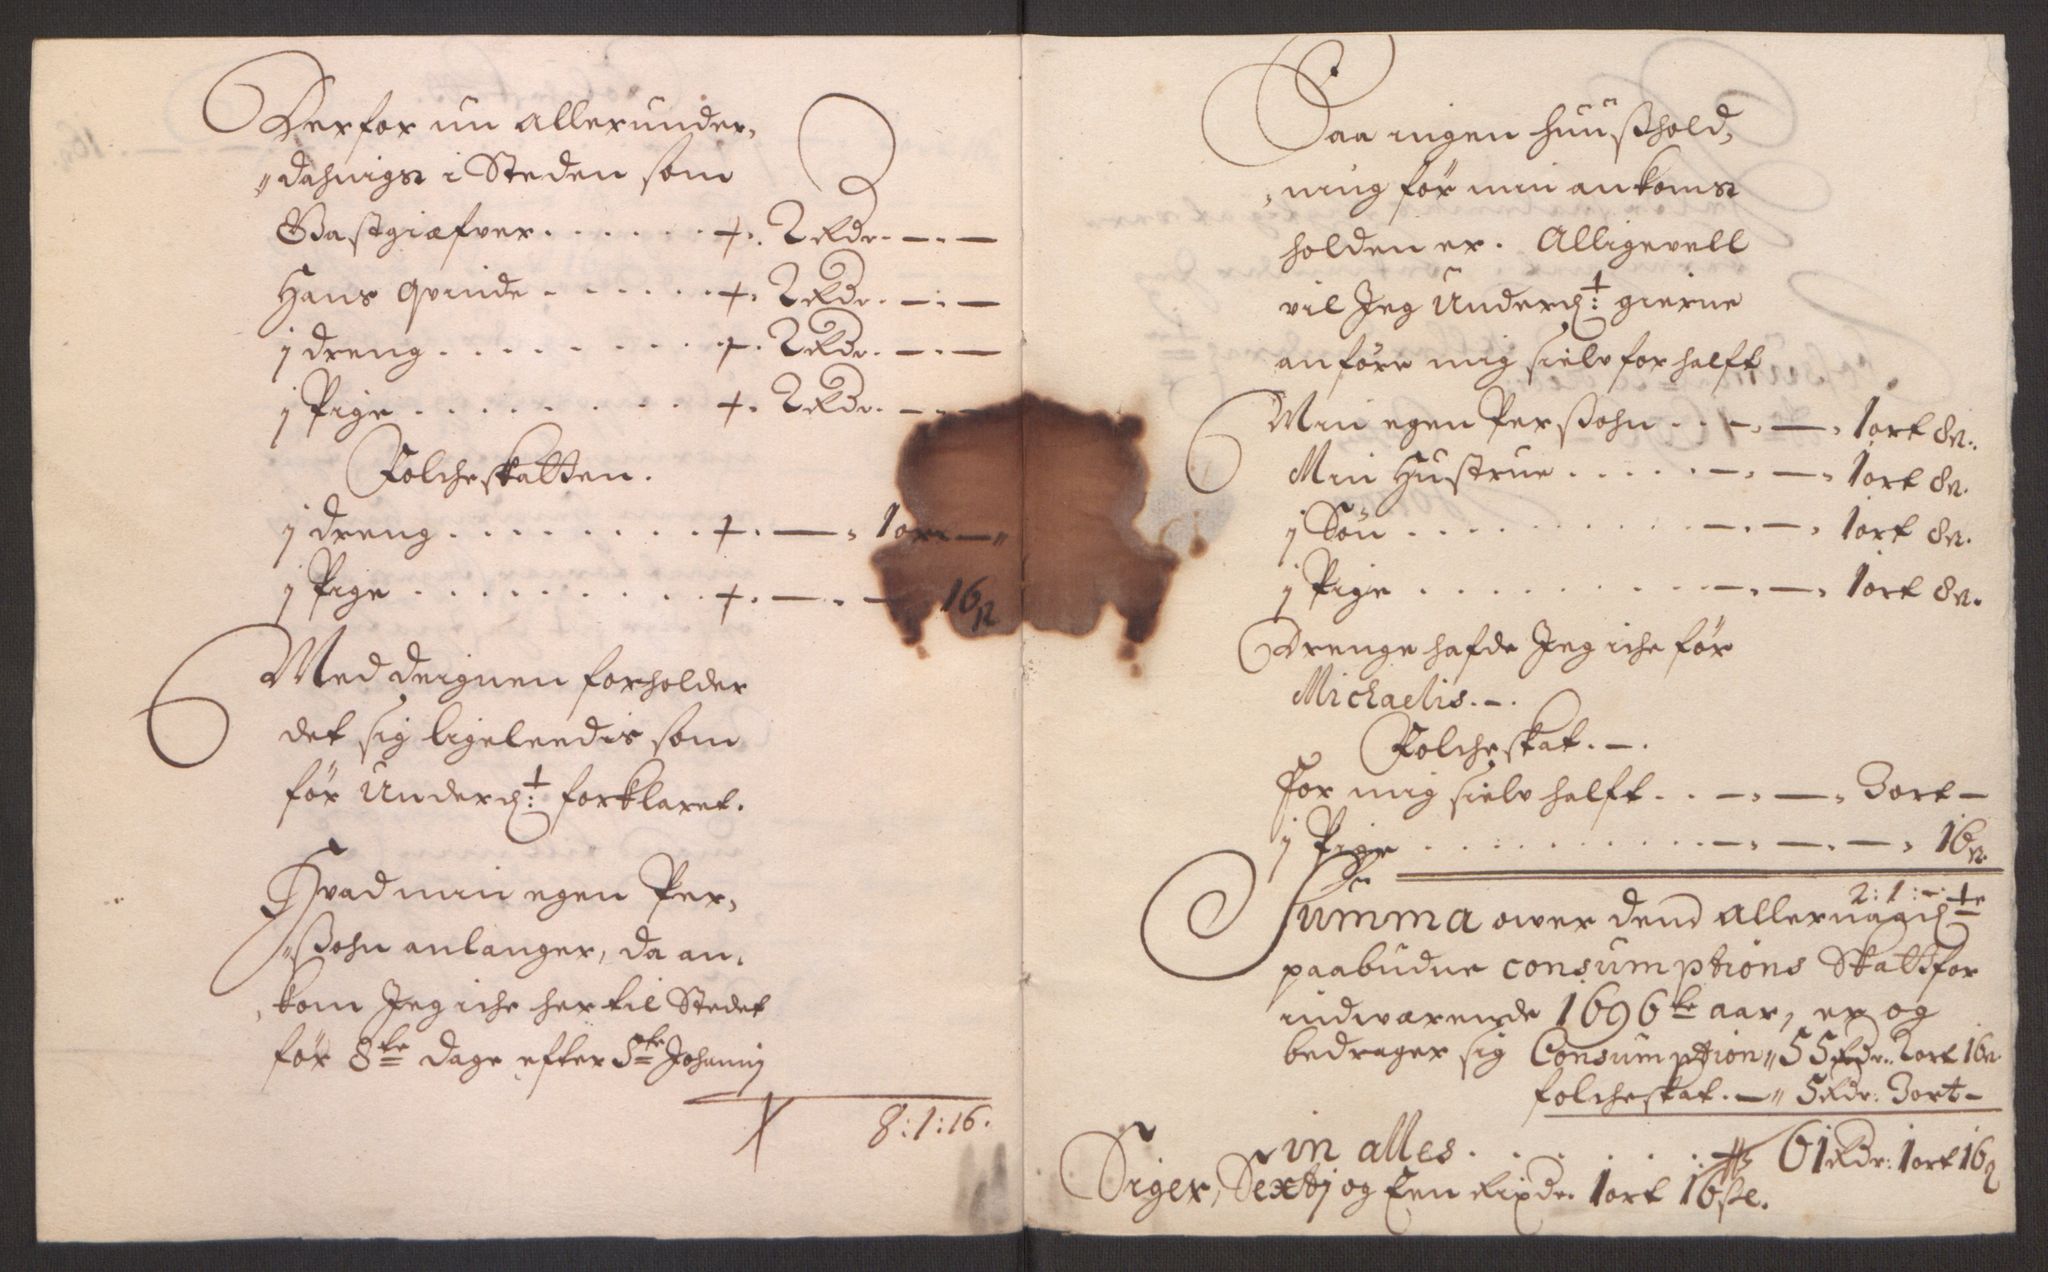 Derfor nu allerunder,
"dahnigst i Steden som
Gastgiæfver . . . . . . +. 2 Rdr. —.—
Hans Qvinde . . . . . . +. 2 Rdr. —.—
j dreng . . . . . . . . +. 2 Rdr. —.—
j Pige . . . . . . . . +. 2 Rdr. —.—
Folcheskatten.
j dreng . . . . . . . +. —, 1 ort —"
j Pige . . . . . . . . +. —. — 16 s
Med deignen forholder
det sig ligeleedis som
før Underd: forklaret.
Hvad min egen Per,
"sohn anlanger, da an,
,kom Jeg iche her til Stedet
før 8te dage efter Ste Johannj
8:1:16.
Saa ingen huusshold,
,ning før min ankomst
holden er. Alligevell
vil Jeg Underd: gierne
anføre mig sielv for halft
Min egen Persohn . . —. —, 1 ort 8 s.
Min Hustrue . . . . . —. —, 1 ort 8 s.
j Søn . . . . . . . . —. —, 1 ort 8 s.
j Pige . . . . . . . . —. —, 1 ort 8 s.
Drenge hafde Jeg iche før
Michaelis. —.
Folcheskat. —.
For mig sielv halft . . —. —, 3 ort —
j Pige . . . . . . . . —. —. —, 16 s.
2:1:—:
Summa ower dend allernaadte
paabudne Consumptions Skatt for
indwærende 1696te aar, er og
bedrager sig Consumption" 55 Rdr. 2 ort 16 s.
folcheskat. —" 5 Rdr: 3 ort —
in alles . . . . . . 61 Rdr: 1 ort 16 s
Siger, Sextj og Een Rixdr. 1 ort 16 sk.